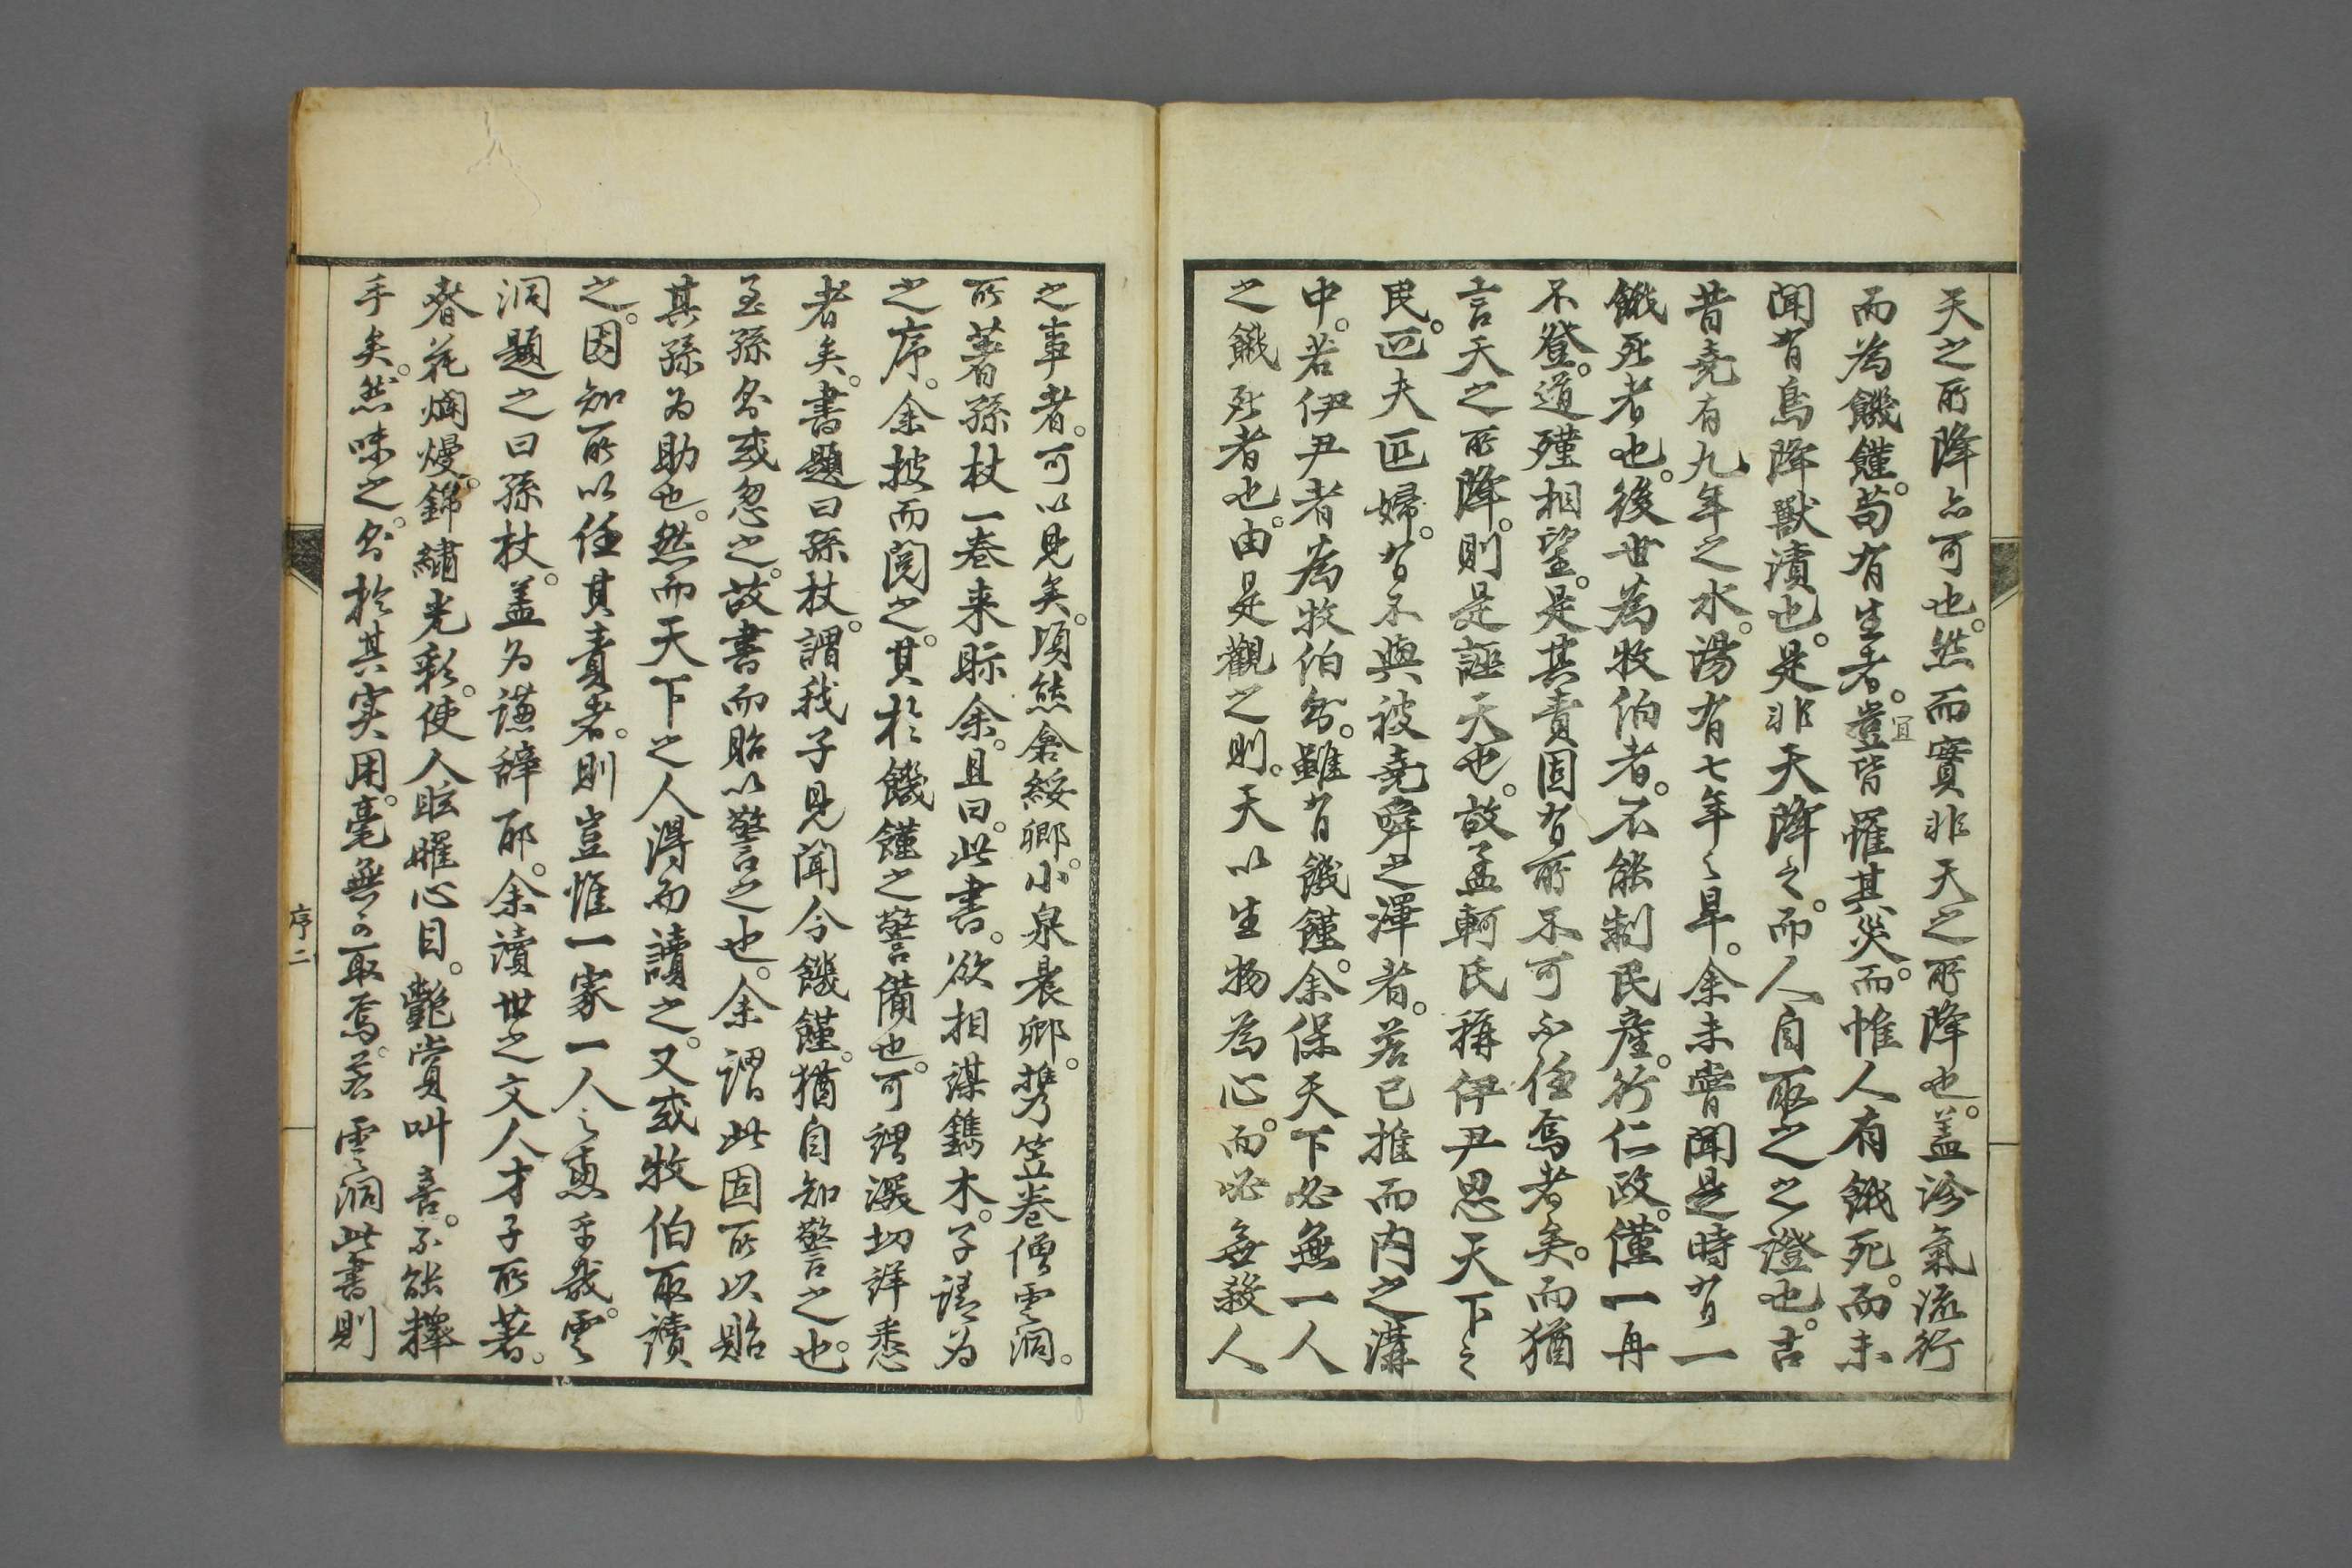 天之所降亦可也。然而實非天之所降也。盖沴氣流行
而為饑饉。苟有生者。豈皆罹其災。而惟人有餓死。而未
宜
聞有鳥降獸瀆也。是非天降之。而人自取之之證也。古
昔堯有九年之水。湯有七年之旱。余未嘗聞是時有一
饑死者也。後世為牧伯者。不能制民產。行仁政。僅一再
不登。道殣相望。是其責固有所不可不任焉者矣。而猶
言天之所降。則是誣天也。故孟軻氏稱伊尹思天下之
民。匹夫匹婦。有不與被堯舜之澤者。若已推而内之溝
中。若伊尹者為牧伯乎。雖有饑饉。余保天下必無一人
之饑死者也。由是觀之。則天以生物為心。而必無殺人
之事者。可以見矣。頃熊倉綬卿。小泉晨卿。携笠卷僧雲洞。
所著孫杖一卷来眎余。且曰。此書。欲相謀鐫木。子請為
之序。余披而閲之。其於饑饉之警備也。可謂深切詳悉
者矣。書題曰孫杖。謂我子見聞今饑饉。猶自知警之也。
至孫乎或忽之。故書而貽以警之也。余謂此固所以貽
其孫為助也。然而天下之人得而讀之。又或牧伯取讀
之。因知所以任其責者。則豈惟一家一人之惠乎哉。雲
洞題之曰孫杖。盖為謙辭耶。余讀世之文人才子所著。
春花爛熳。錦繡光彩。使人眩曜心目。艷賞叫喜。不能釋
手矣。然味之。乎於其実用。毫無可取焉。若雲洞此書則
序二